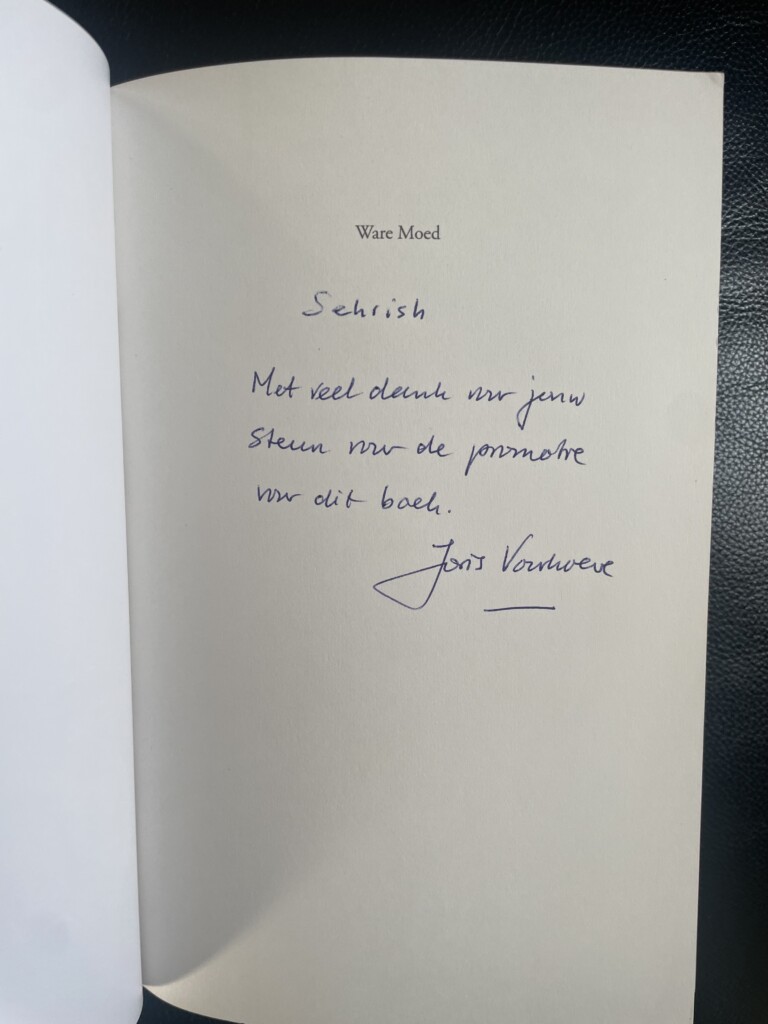 Ware Moed
Sehrish
Met veel dank voor jouw
steun voor de promotie
voor dit boek.
Joris Voorhoeve